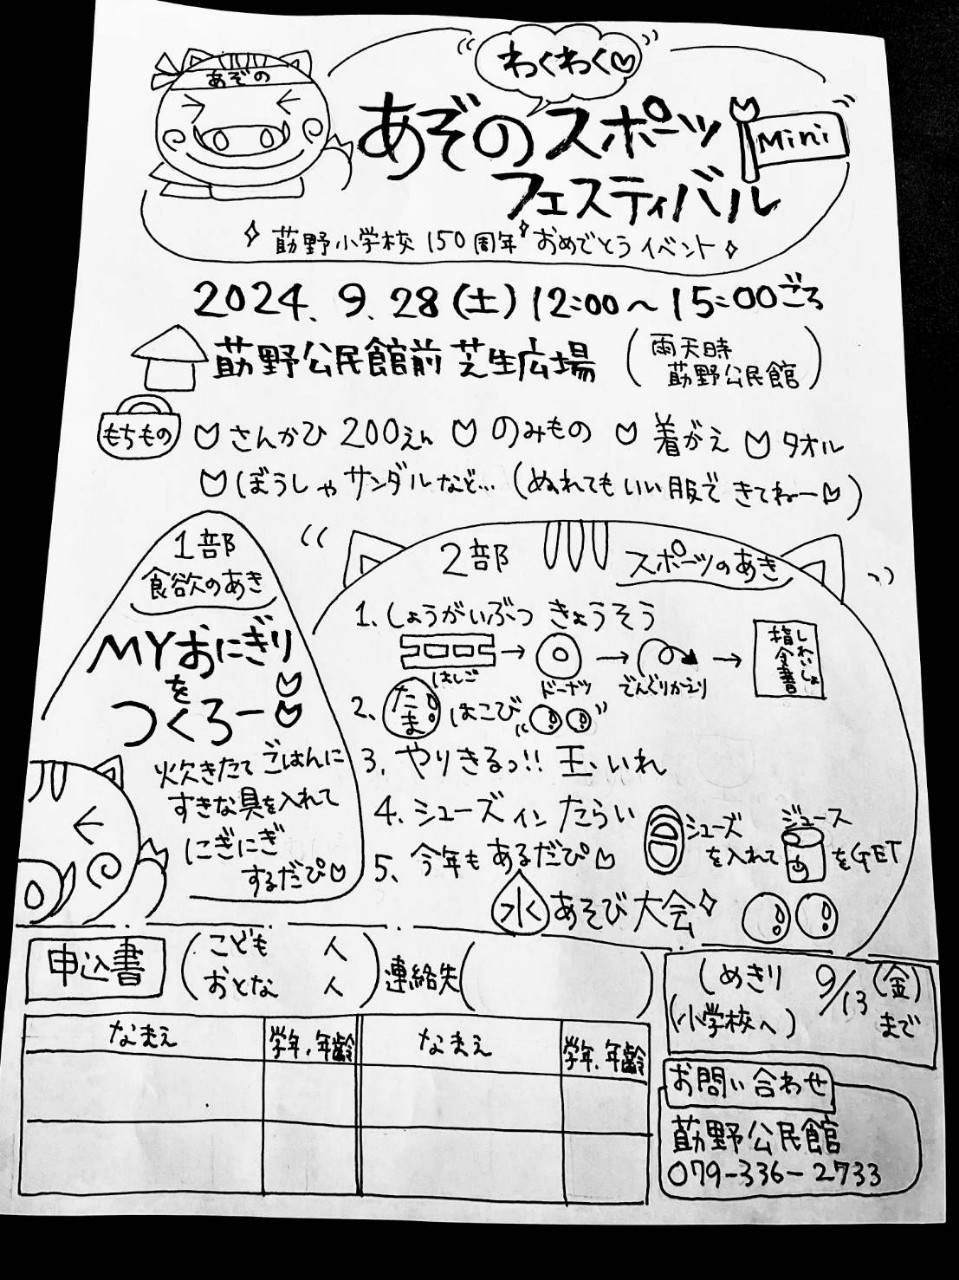 わくわく
あぞの
あぞのスポーツ
Mini
フェスティバル
莇野小学校150周年おめでとうイベント
2024.9.28(土)12:00～15:00ごろ
莇野公民館前芝生広場
(雨天時
莇野公民館)
もちもの
さんかひ200えん のみもの 着がえ タオル
ぼうしゃサンダルなど…(ぬれてもいい服できてねー)
1部
食欲のあき
MYおにぎり
を
つくろー
炊きたてごはんに
すきな具を入れて
にぎにぎ
するだぴ
2部 スポーツのあき
1.しょうがいぶつきょうそう
はしご→ドーナツ→でんぐりかえり→
しれいしょ
指令書
2.たまはこび
3.やりきるっ!!玉いれ
4.シューズインたらい
シューズを入れてジュースをGET
5.今年もあるだぴ
水あそび大会
申込書
(こども 人
おとな 人)
連絡先( )
しめきり 9/13(金)
(小学校へ) まで
なまえ 学年、年齢 なまえ 学年、年齢
お問い合わせ
莇野公民館
079-336-2733